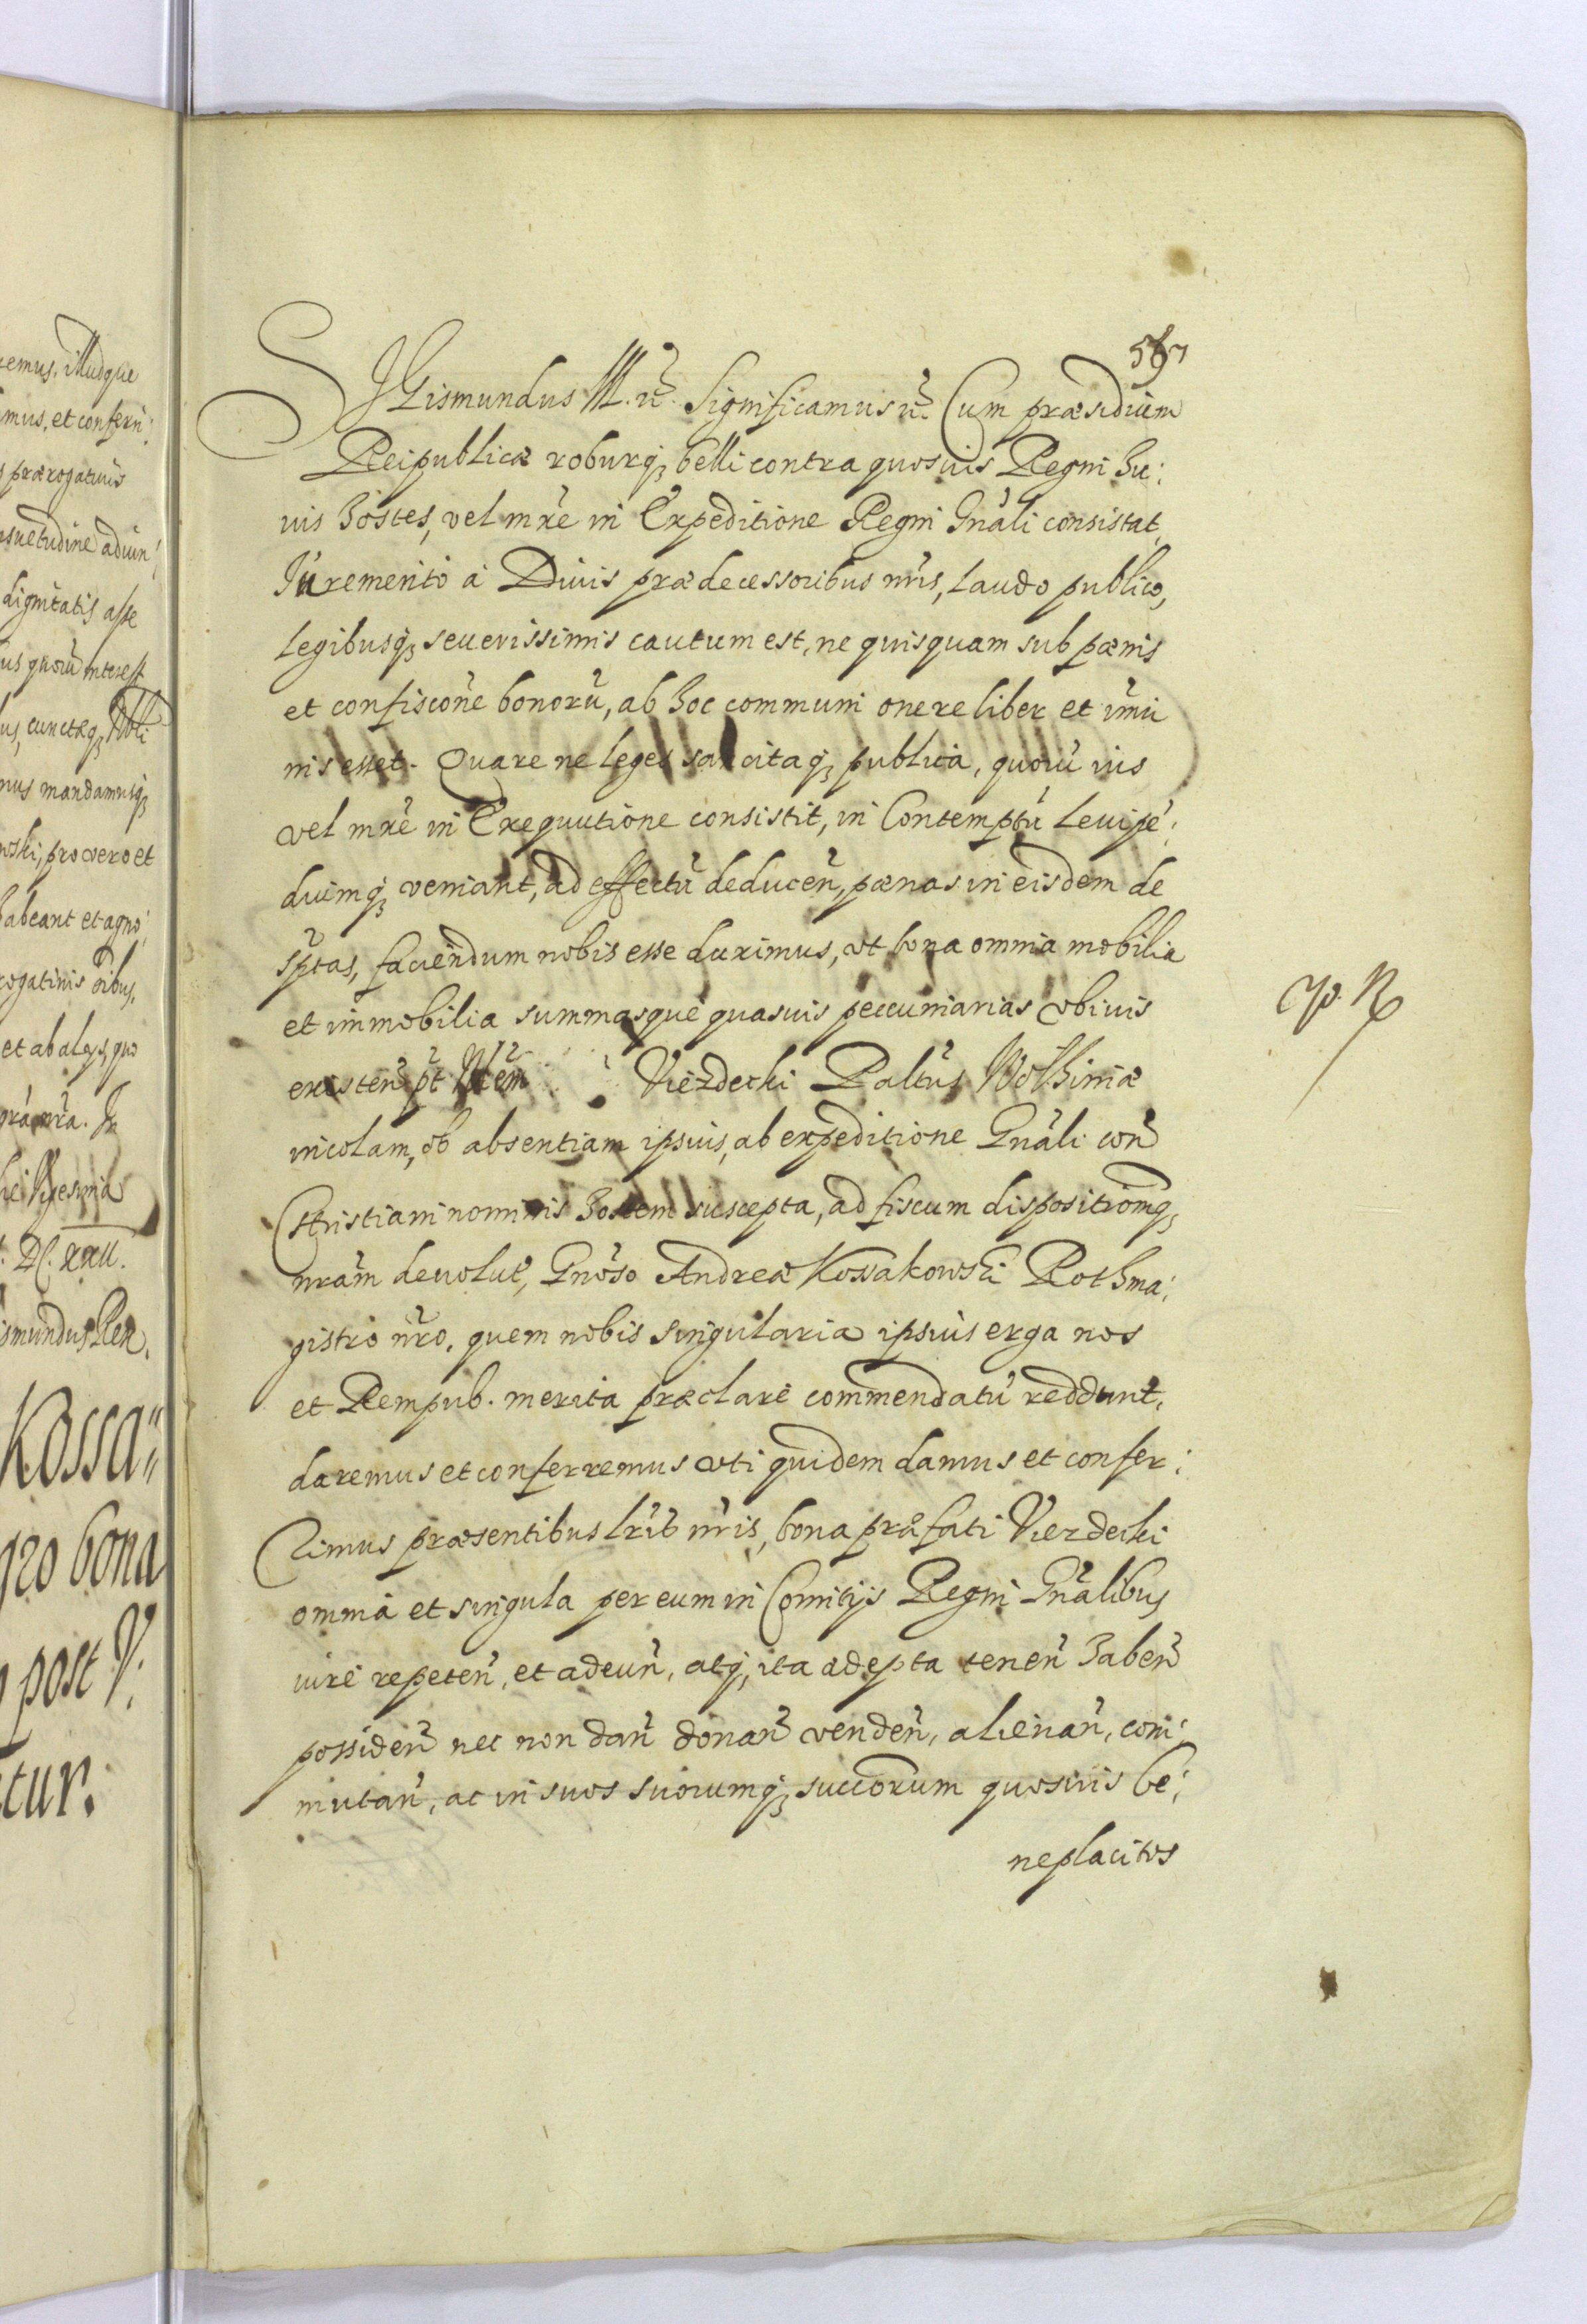 emus, illudque
mus, et confern:
prærogatiuis
suetudine aduin
dignitatis asse
us quorũ interest
us, cunctisq;
mus mandamusq;
wski, pro vero et
habeant et agno
rogatiuis õibus,
et ab alijs, quo
grã nrã. In
Vigesima
DC. XXII.
ismundus Rex.
Kossa=
gro bona
post V.
tur.
567
SIGismundus III. ñ. Significamus ñ. Cum præsidium
Reipublicæ roburq; belli contra quosuis Regni hu:
uis hostes, vel mxẽ in Expeditione Regni Gnãli consistat,
Iure merito à Diuis prædecessoribus nris, laudo publico,
legibusq; seuerissimis cautum est, ne quisquam sub pænis
et confiscõne bonorũ, ab hoc communi onere liber et imũ
nis esset. Quare ne leges sancitaq; publica, quorũ uis
vel mxẽ in Exequutione consistit, in Contemptũ leuipẽ:
duimq; veniant, ad effectũ deducẽn, pænas in eisdem de
sptas, faciendum nobis esse duximus, vt bona omnia mobilia
et immobilia summasque quasuis peccuniarias vbiuis
existeñ pt Viezdecki Paltũs Wolhiniæ
incolam, ob absentiam ipsius, ab expeditione Gnãli con
Christiani nominis hostem suscepta, ad fiscum dispositionẽq;
nrãm deuolut, Gnõso Andreæ Kossakowski Rothma:
gistro nr̃o, quem nobis singularia ipsius erga nos
et Rempub. merita præclare commendatũ reddunt,
daremus et conferremus vti quidem damus et confer:
rimus præsentibus lrĩb nrĩs, bona præfati Viezdecki
omnia et singula per eum in Comitijs Regni Gnãlibus
iure repeteñ, et adeuñ, atq; ita adepta teneñ habeñ
possideñ nec non dañ donañ vendeñ, alienañ, com:
mutañ, ac in suos suorumq; succorum quosuis be:
neplacitos